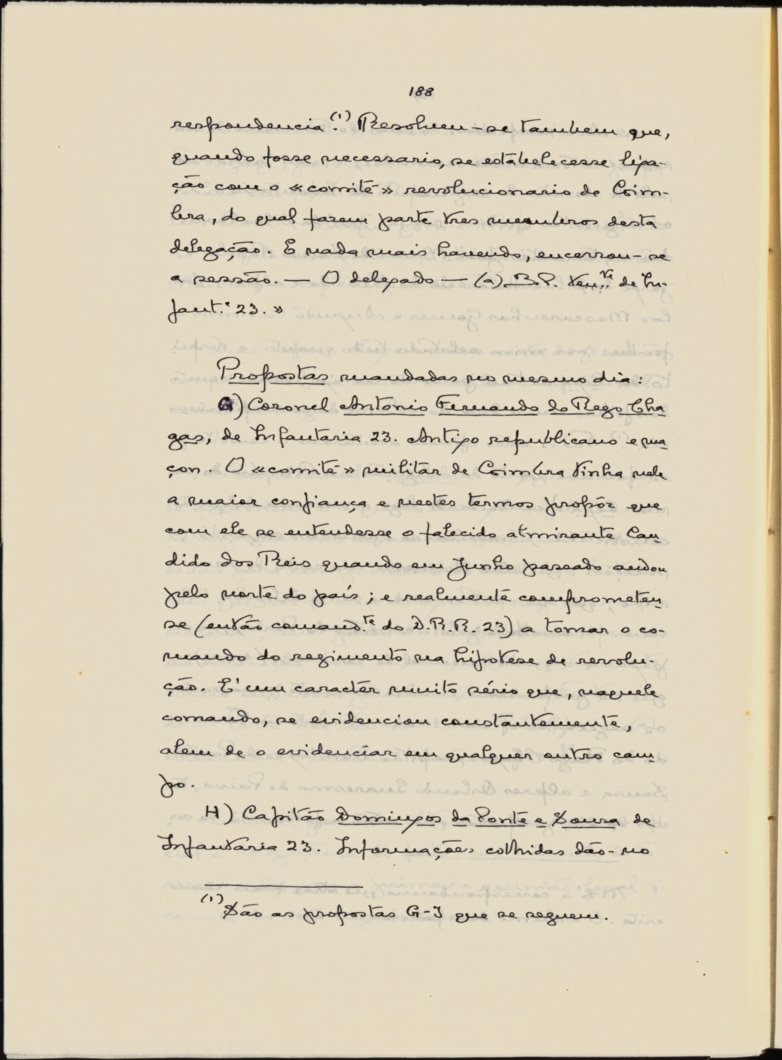 188
respondencia.(1) Resolveu-se tambem que,
quando fosse necessario, se estabelecesse liga-
ção com o «comité» revolucionario de Coim-
bra, do qual fazem parte tres membros desta
delegação. E nada mais havendo, encerrou-se
a sessão. — O delegado — (a) B.P. Ten.te de In-
fant.ª 23. »
Propostas mandadas no mesmo dia:
G) Coronel Antonio Fernando do Rego Cha-
gas, de Infantaria 23. Antigo republicano e ma-
çon. O «comité» militar de Coimbra tinha nele
a maior confiança e nestes termos propôz que
com ele se entendesse o falecido almirante Can-
dido dos Reis quando em Junho passado andou
pelo norte do país; e realmente comprometeu-
se (então comand.te do D.R.R. 23) a tomar o co-
mando do regimento na hipotese de revolu-
ção. E' um caracter muito sério que, naquele
comando, se evidenciou constantemente,
alem de o evidenciar em qualquer outro cam-
po.
H) Capitão Domingos da Ponte e Sousa de
Infantaria 23. Informações colhidas dão-no
(1) São as propostas G-J que se seguem.